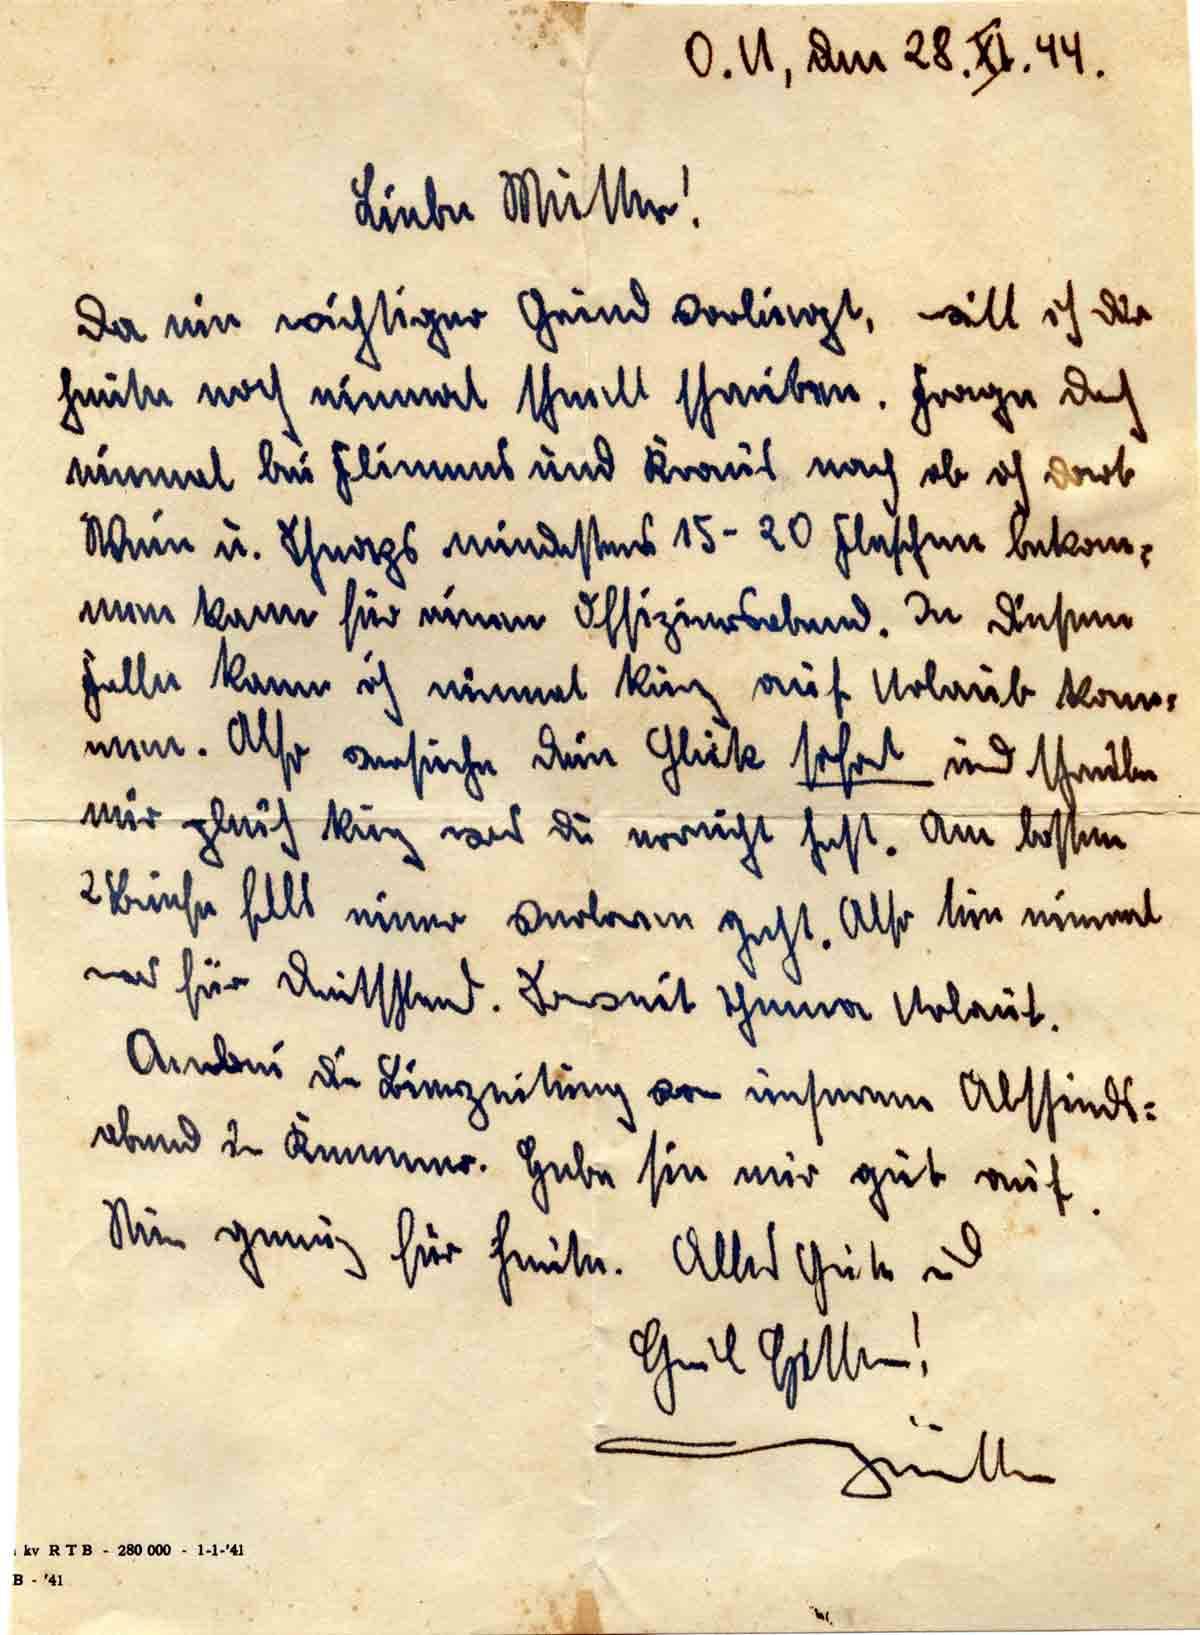 O.U, den 28.XI.44.
Liebe Mutter!
Da ein wichtiger Grund vorliegt, will ich dir
heute noch einmal schnell schreiben. Frage doch
einmal bei und Kraus nach ob ich dort
Wein u. Schnaps mindestens 15-20 Flaschen bekom=
men kann für einen Offiziersabend. In diesem
Falle kann ich einmal kurz auf Urlaub kom=
men. Also versuche dein Glück sofort und schreibe
mir gleich kurz was du erreicht hast. Am besten
2 Briefe falls einer verloren geht. Also tue einmal
was für Deutschland. Urlaub.
Anbei die Bierzeitung von unserem Abschieds=
abend in . Hebe sie mir gut auf.
Nun genug für heute. Alles Gute und
Heil Hitler!
kv RTB - 280 000 - 1-1-'41
B - '41